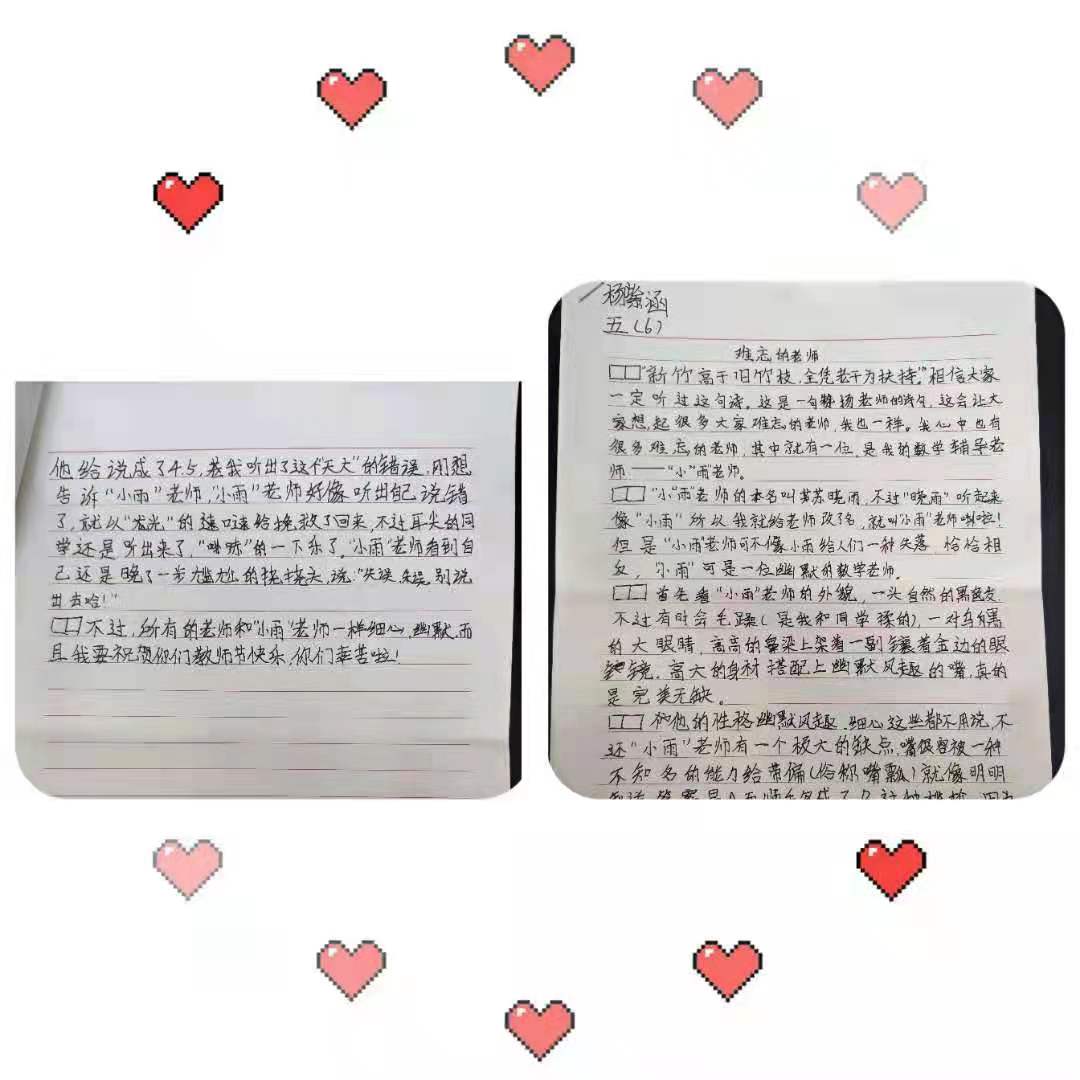 杨紫涵
五(6)
难忘的老师
"新竹高于旧竹枝,全凭老干为扶持。"相信大家
一定听过这句诗。这是一句赞扬老师的诗句,这会让大
家想起很多大家难忘的老师,我也一样。我心中也有
很多难忘的老师,其中就有一位,是我的数学辅导老
师——"小"雨"老师。
"小"雨"老师的本名叫苏晓雨,不过"晓雨"听起来
像"小雨"所以我就给老师改了名,就叫"小雨"老师啦!
但是"小雨"老师可不像小雨给人们一种失落,恰恰相
反,"小雨"可是一位幽默的数学老师。
首先看"小雨"老师的外貌,一头自然的黑色发,
不过有时会毛躁(是我和同学揉的),一对乌黑
的大眼睛,高高的鼻梁上架着一副镶着金边的眼
镜,高大的身材搭配上幽默风趣的嘴,真的
是完美无缺。
和他的性格幽默风趣,细心这些都不用说,不
还"小雨"老师有一个极大的缺点,嘴很容被一种
不知名的能力给带偏(俗称嘴瓢)就像明明
他给说成了45,若我听出了这个"天大"的错误,刚想
告诉"小雨"老师,"小雨"老师好像听出自己说错
了,就以"光"的速度给挽救了回来,不过耳尖的同
学还是听出来了,"噗嗤"的一下乐了。"小雨"老师看到自
己还是晚了一步尴尬的挠挠头说:"失误,失误,别说
出去哈!"
不过,所有的老师和"小雨"老师一样细心,幽默,而
且我要祝贺你们教师节快乐,你们辛苦啦!